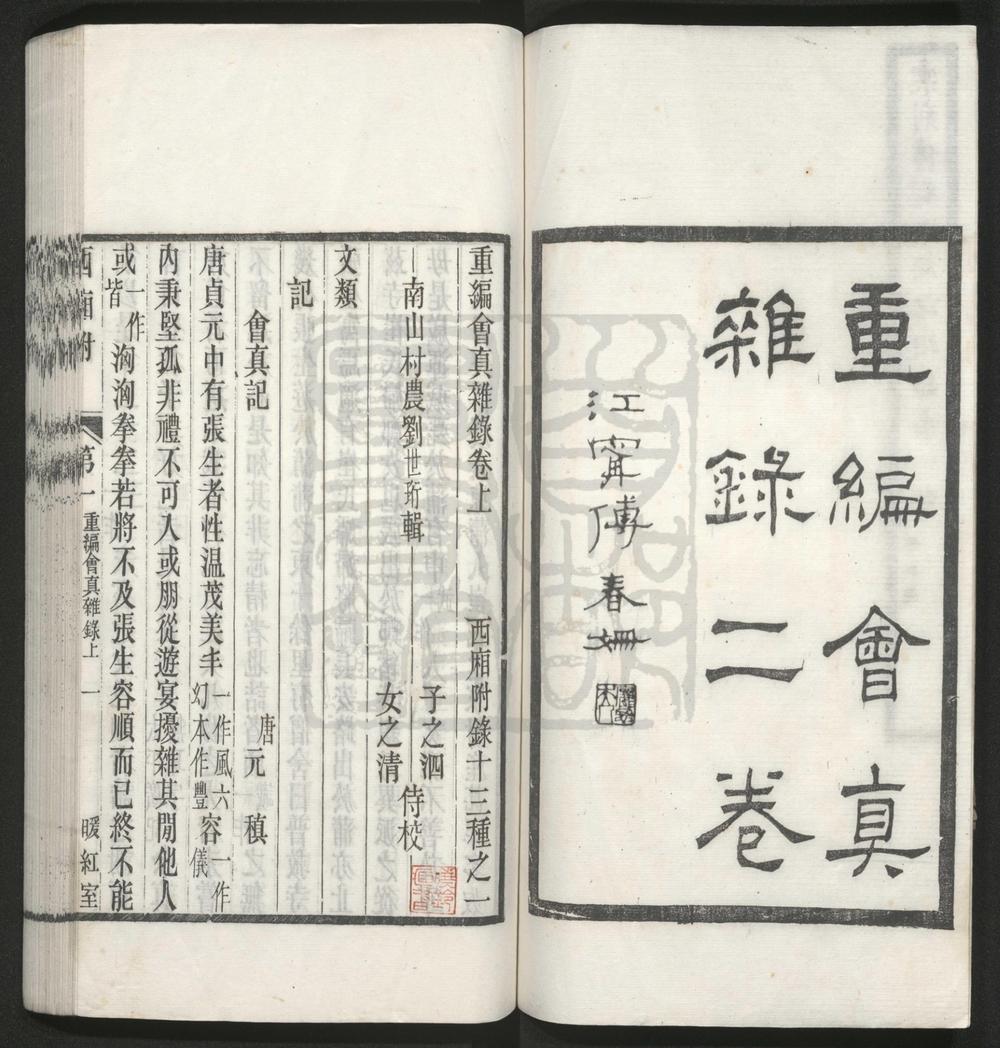 重編會真
雜錄二卷
江寗傅春姍
重編會真雜錄卷上 西廂附錄十三種之一
南山村農劉世珩輯 子之泗 女之清 侍校
文類
記
會真記 唐元稹
唐貞元中有張生者性溫茂美丰一作風六幻本作豐容一作儀
內秉堅孤非禮不可入或朋從遊宴擾雜其閒他人
或一作皆洶洶拳拳若將不及張生容順而已終不能
西廂附 第一 重編會真雜錄上 一 暖紅室